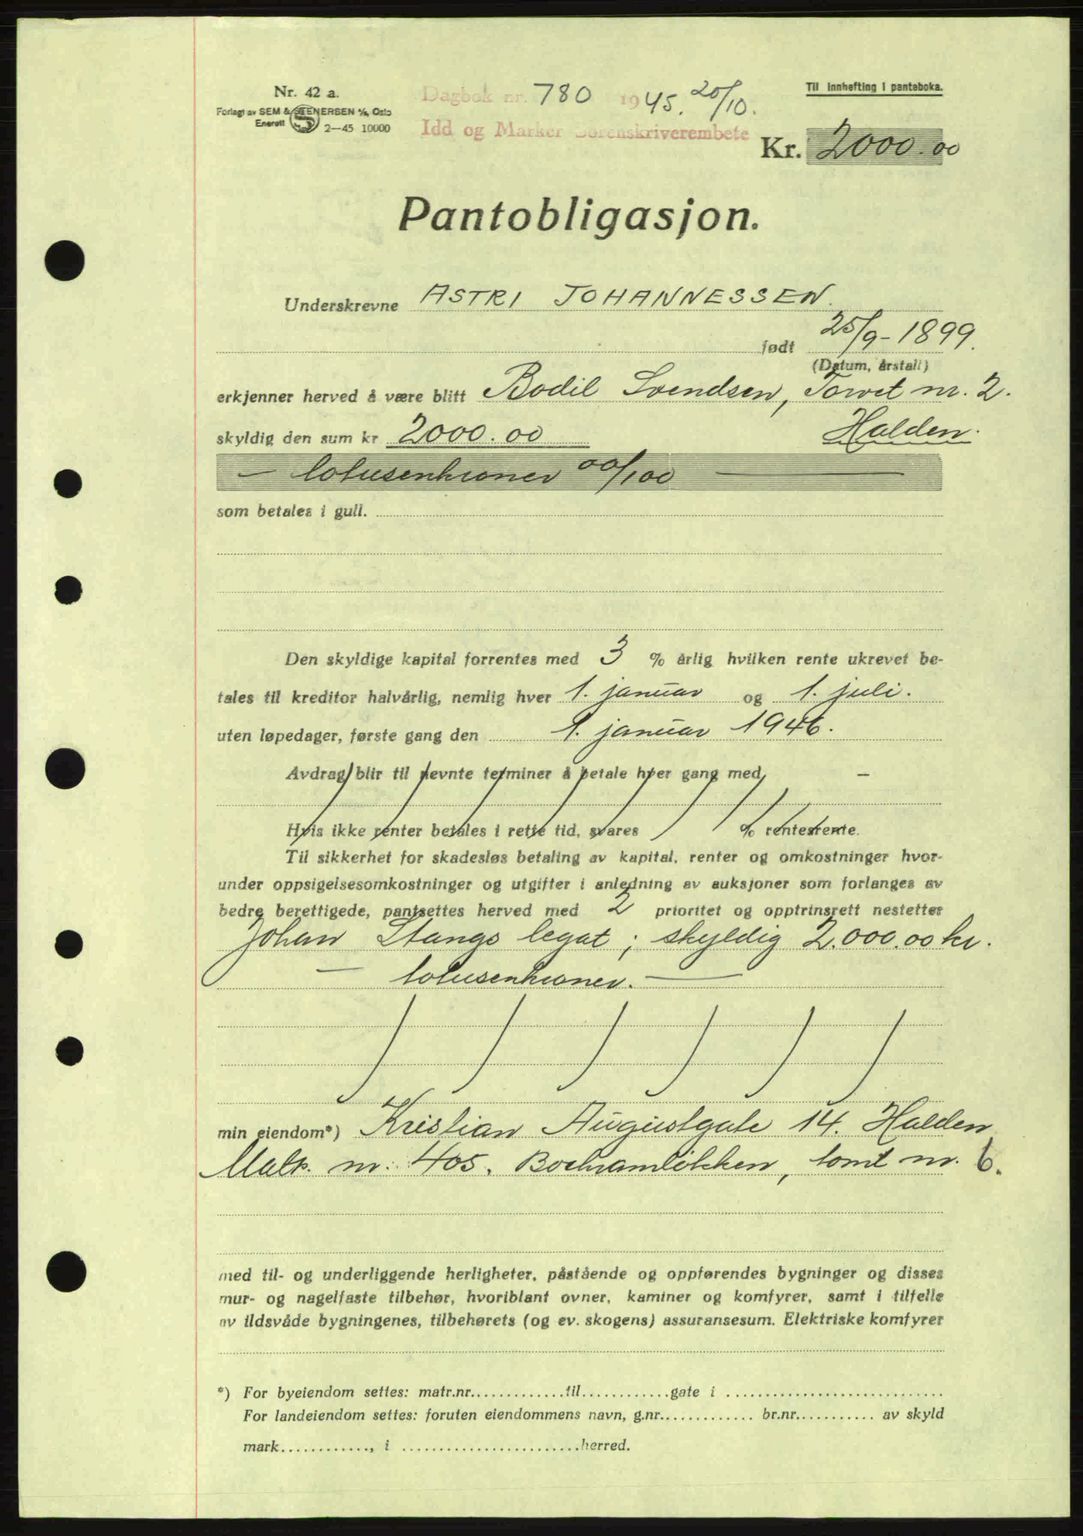 Nr. 42 a.
Forlagt av SEM & STENERSEN A/S, Oslo
Enerett 2—45 10000
Dagbok nr. 780 1945. 20/10.
Idd og Marker Sorenskriverembete
Til innhefting i panteboka.
Kr. 2000.00
Pantobligasjon.
Underskrevne ASTRI JOHANNESSEN.
født 25/9-1899.
(Datum, årstall)
erkjenner herved å være blitt Bodil Svendsen, Torvet nr. 2.
skyldig den sum kr 2000.00 Halden.
— totusenkroner 00/100 —
som betales i gull.
Den skyldige kapital forrentes med 3 % årlig hvilken rente ukrevet be-
tales til kreditor halvårlig, nemlig hver 1. januar og 1. juli.
uten løpedager, første gang den 1. januar 1946.
Avdrag blir til nevnte terminer å betale hver gang med —
Hvis ikke renter betales i rette tid, svares % rentesrente.
Til sikkerhet for skadesløs betaling av kapital, renter og omkostninger hvor-
under oppsigelsesomkostninger og utgifter i anledning av auksjoner som forlanges av
bedre berettigede, pantsettes herved med 2 prioritet og opptrinsrett nestetter
Johan Stangs legat; skyldig 2.000.00 kr.
— totusenkroner. —
min eiendom*) Kristian Augustgate 14. Halden
Matr. nr. 405. Bochramløkken, tomt nr. 6.
med til- og underliggende herligheter, påstående og oppførendes bygninger og disses
mur- og nagelfaste tilbehør, hvoriblant ovner, kaminer og komfyrer, samt i tilfelle
av ildsvåde bygningenes, tilbehørets (og ev. skogens) assuransesum. Elektriske komfyrer
*) For byeiendom settes: matr.nr..............til............gate i ............................
For landeiendom settes: foruten eiendommens navn, g.nr............. br.nr........... av skyld
mark............, i ........................herred.